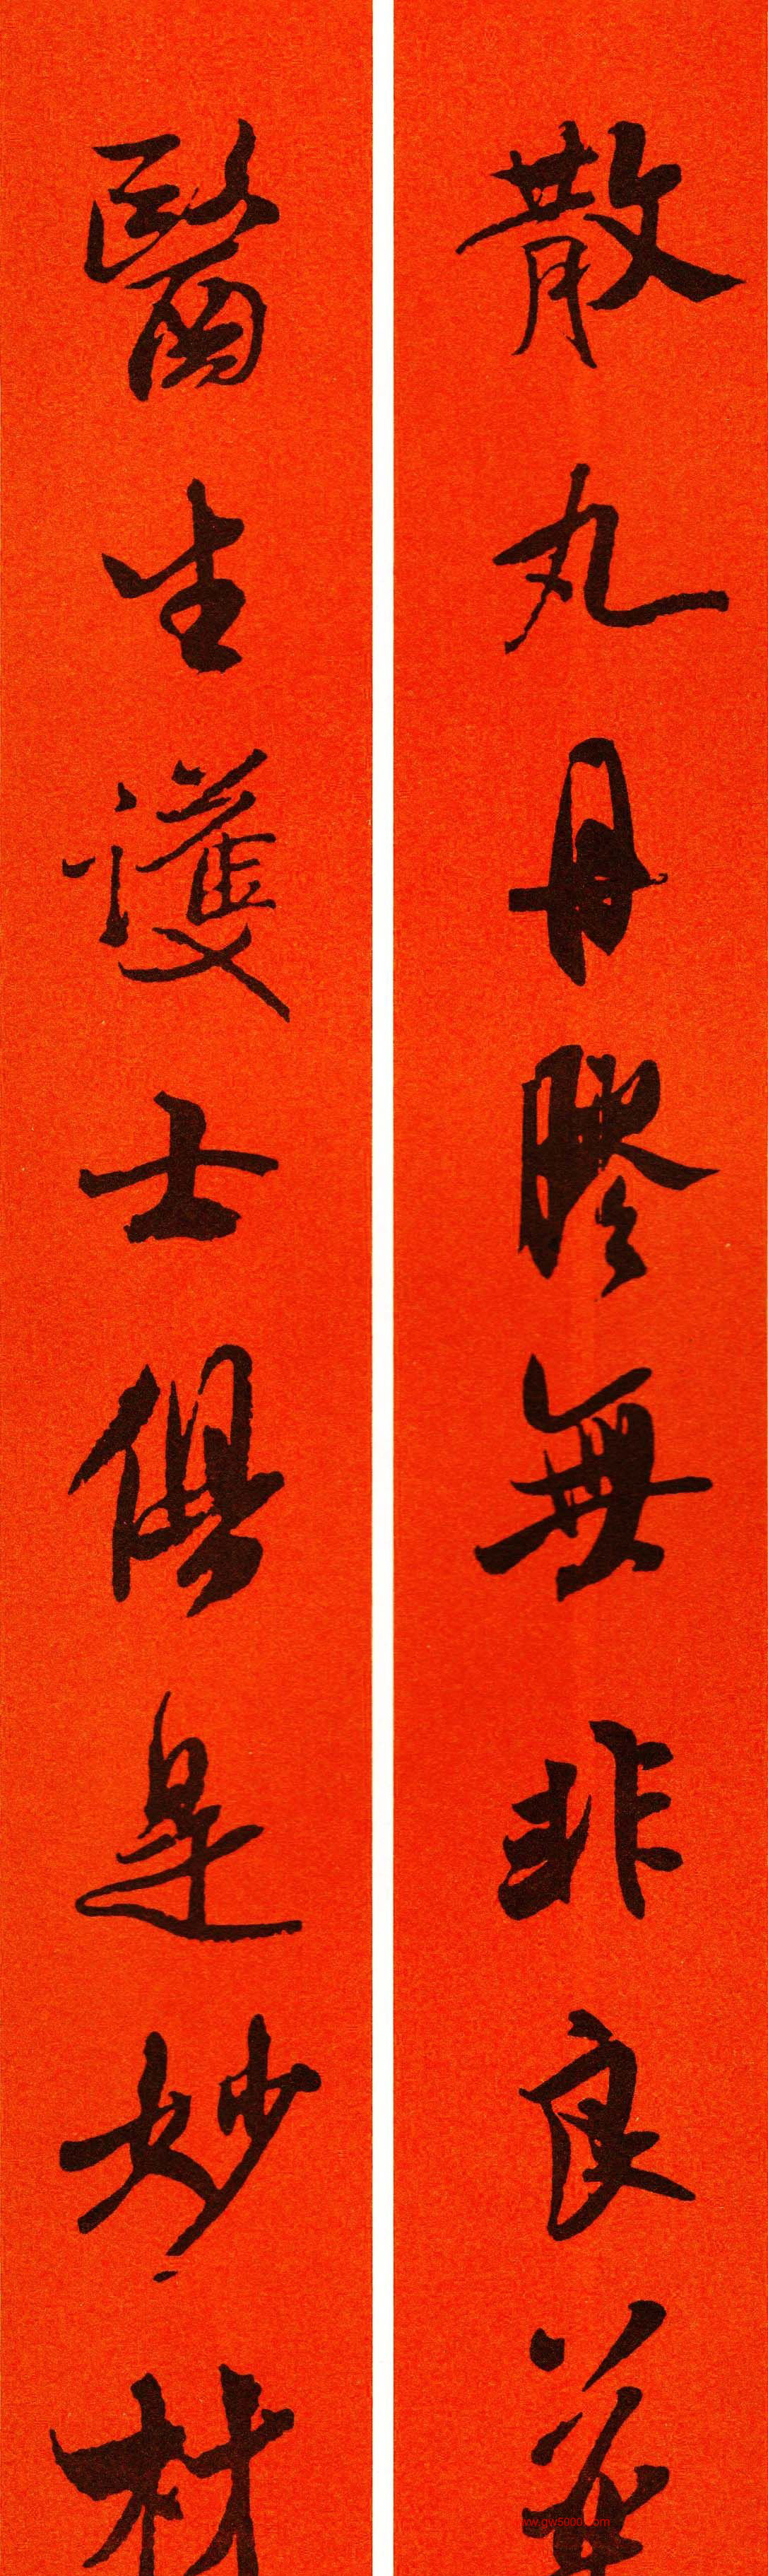 散丸丹膠無非良藥
醫生護士俱是妙材
www.gw5000.com